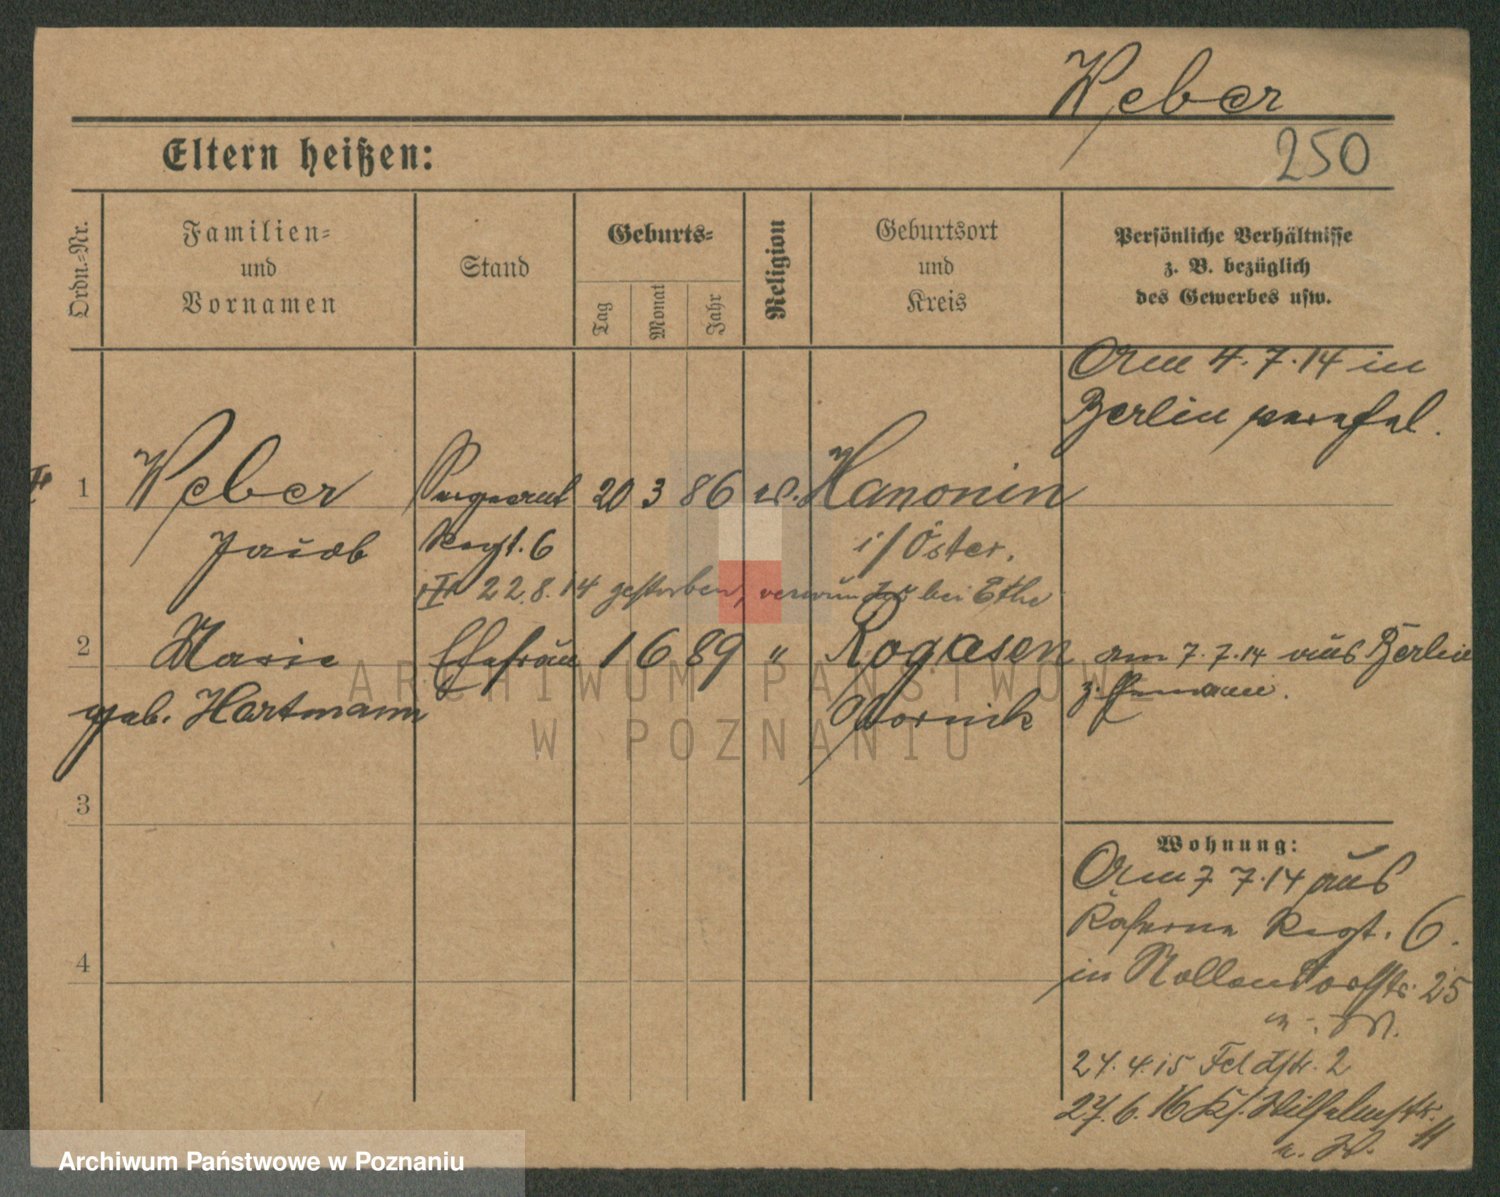 Weber
250
Eltern heißen:
Ordn.-Nr.
Familien-
und
Vornamen
Stand
Geburts-
Tag
Monat
Jahr
Religion
Geburtsort
und
Kreis
Persönliche Verhältnisse
z. B. bezüglich
des Gewerbes usw.
Am 4.7.14 in
Berlin
1 Weber Sergeant 20 3 86 Hanonin
Jacob Regt. 6 i/Öster.
22.8.14 gestorben, verwundet bei Ethe
2 Marie Ehefrau 1 6 89 " Rogasen am 7.7.14 aus Berlin
geb. Hartmann Obornick
3
4
Wohnung:
Am 7 7.14 aus
Kaserne Regt. 6.
in Nollendorfstr. 25
24.4.15 Feldstr. 2
27.6.16 Kl. Wilhelmstr. 11
ARCHIWUM PAŃSTWOWE
W POZNANIU
Archiwum Państwowe w Poznaniu